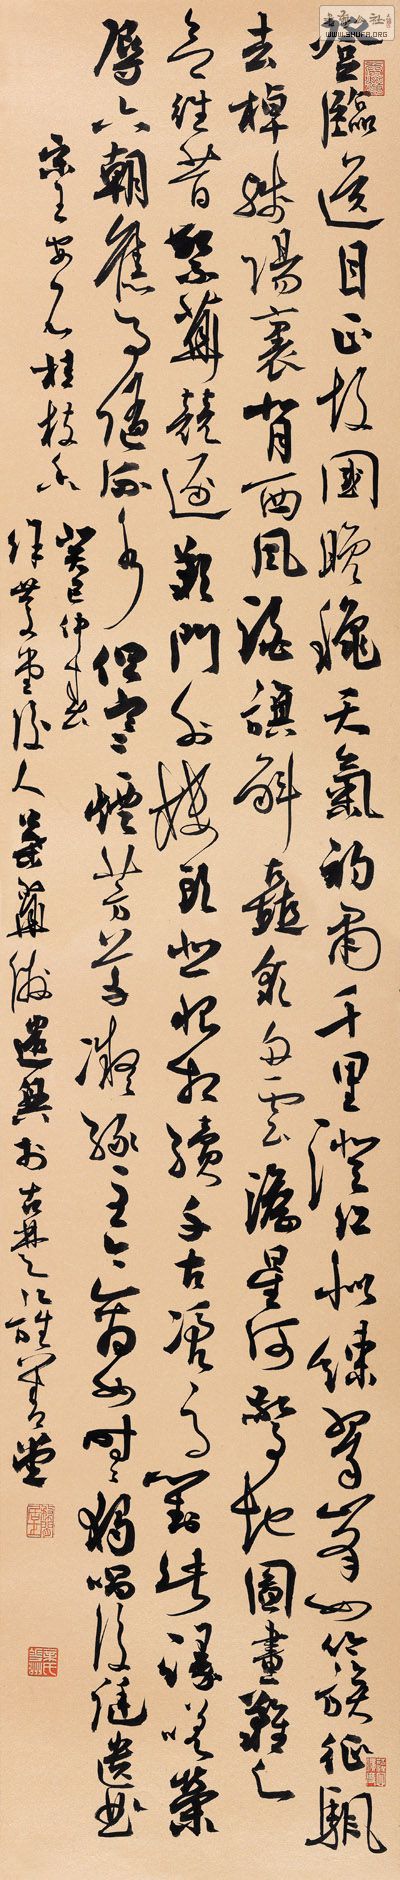 登臨送目正故國晚秋天氣初肅千里澄江似練翠峰如簇征颿
去棹殘陽裏背西風酒旗斜矗彩舟雲淡星河鷺起圖畫難足
念往昔繁華競逐歎門外樓頭悲恨相續千古憑高對此漫嗟榮
辱六朝舊事隨流水但寒煙芳草凝綠至今商女時時猶唱後庭遺曲
宋王安石桂枝香
癸巳仲春
後人葉華遣興於古楚江
WWW.SHUFA.ORG